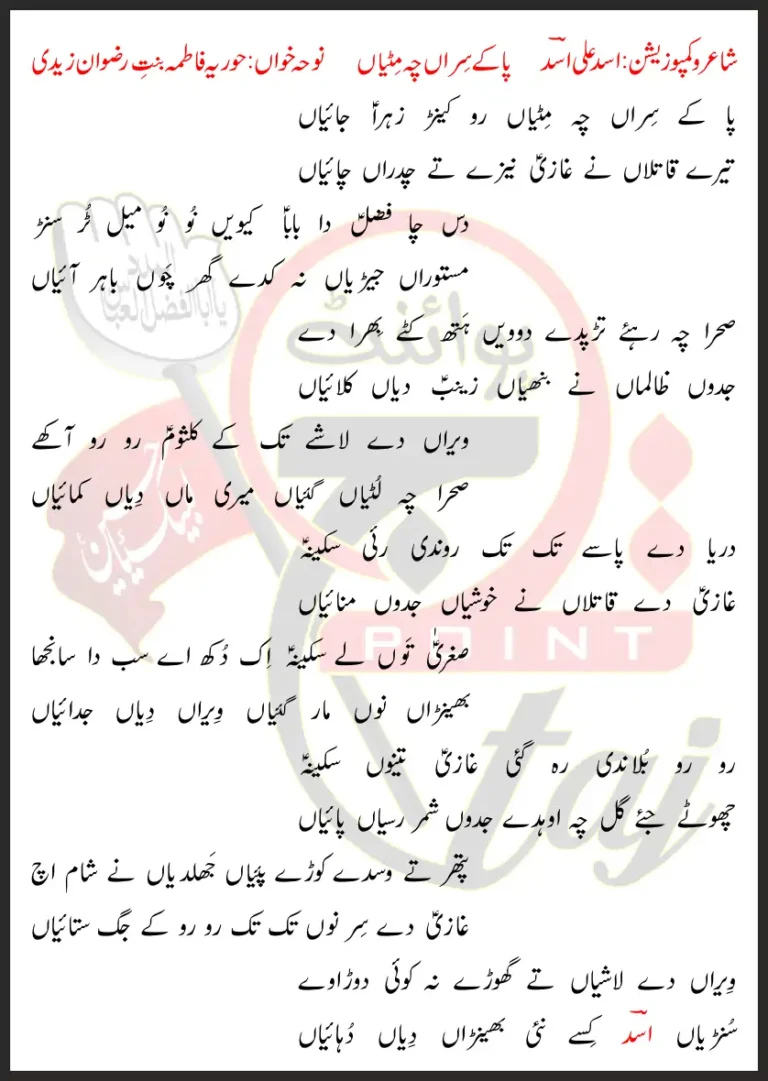 شاعر و کمپوزیشن: اسد علی اسدؔ پا کے سِراں چہ مِٹیاں نوحہ خواں: حوریہ فاطمہ بنتِ رضوان زیدی
پا کے سِراں چہ مِٹیاں رو کینڑ زہراؑ جائیاں
تیرے قاتلاں نے غازیؑ نیزے تے چدراں چائیاں
دس چا فضلؑ دا باباؑ کیویں نُو نُو میل ٹُر سنڑ
مستوراں جیڑیاں نہ کدے گھر چَوں باہر آئیاں
صحرا چہ رہئے تڑپدے دوویں ہَتھ کٹے بِھرا دے
جدوں ظالماں نے بنھیاں زینبؑ دیاں کلائیاں
ویراں دے لاشے تک کے کلثومؑ رو رو آکھے
صحرا چہ لُٹیاں گئیاں میری ماں دِیاں کمائیاں
دریا دے پاسے تک تک روندی رئی سکینہؑ
غازیؑ دے قاتلاں نے خوشیاں جدوں منائیاں
صغریٰؑ تَوں لے سکینہؑ اِک دُکھ اے سب دا سانجھا
بھینڑاں نوں مار گئیاں وِیراں دِیاں جدائیاں
رو رو بُلاندی رہ گئی غازیؑ تینوں سکینہؑ
چھوٹے جئے گل چہ اوہدے جدوں شمر رسیاں پائیاں
پتھر تے وسدے کوڑے پئیاں جَھلدیاں نے شام اچ
غازیؑ دے سِر نوں تک تک رو رو کے جگ ستائیاں
وِیراں دے لاشیاں تے گھوڑے نہ کوئی دوڑاوے
سُنڑیاں اسدؔ کِسے نئی بھینڑاں دِیاں دُہائیاں
یا ابا الفضل العباس
لبیک یا حسین
پوائنٹ
تاج
POINT
taj